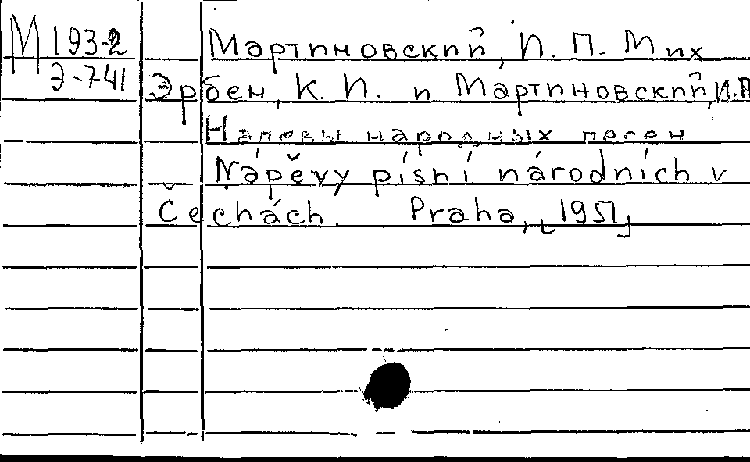 М 193-2
Э-741
Мартиновский, И. П. Мих
Эрбен, К. И. и Мартиновский, И.П
Напевы народных песен
Nápěvy písní národních v
Čechách. Praha, [1951]